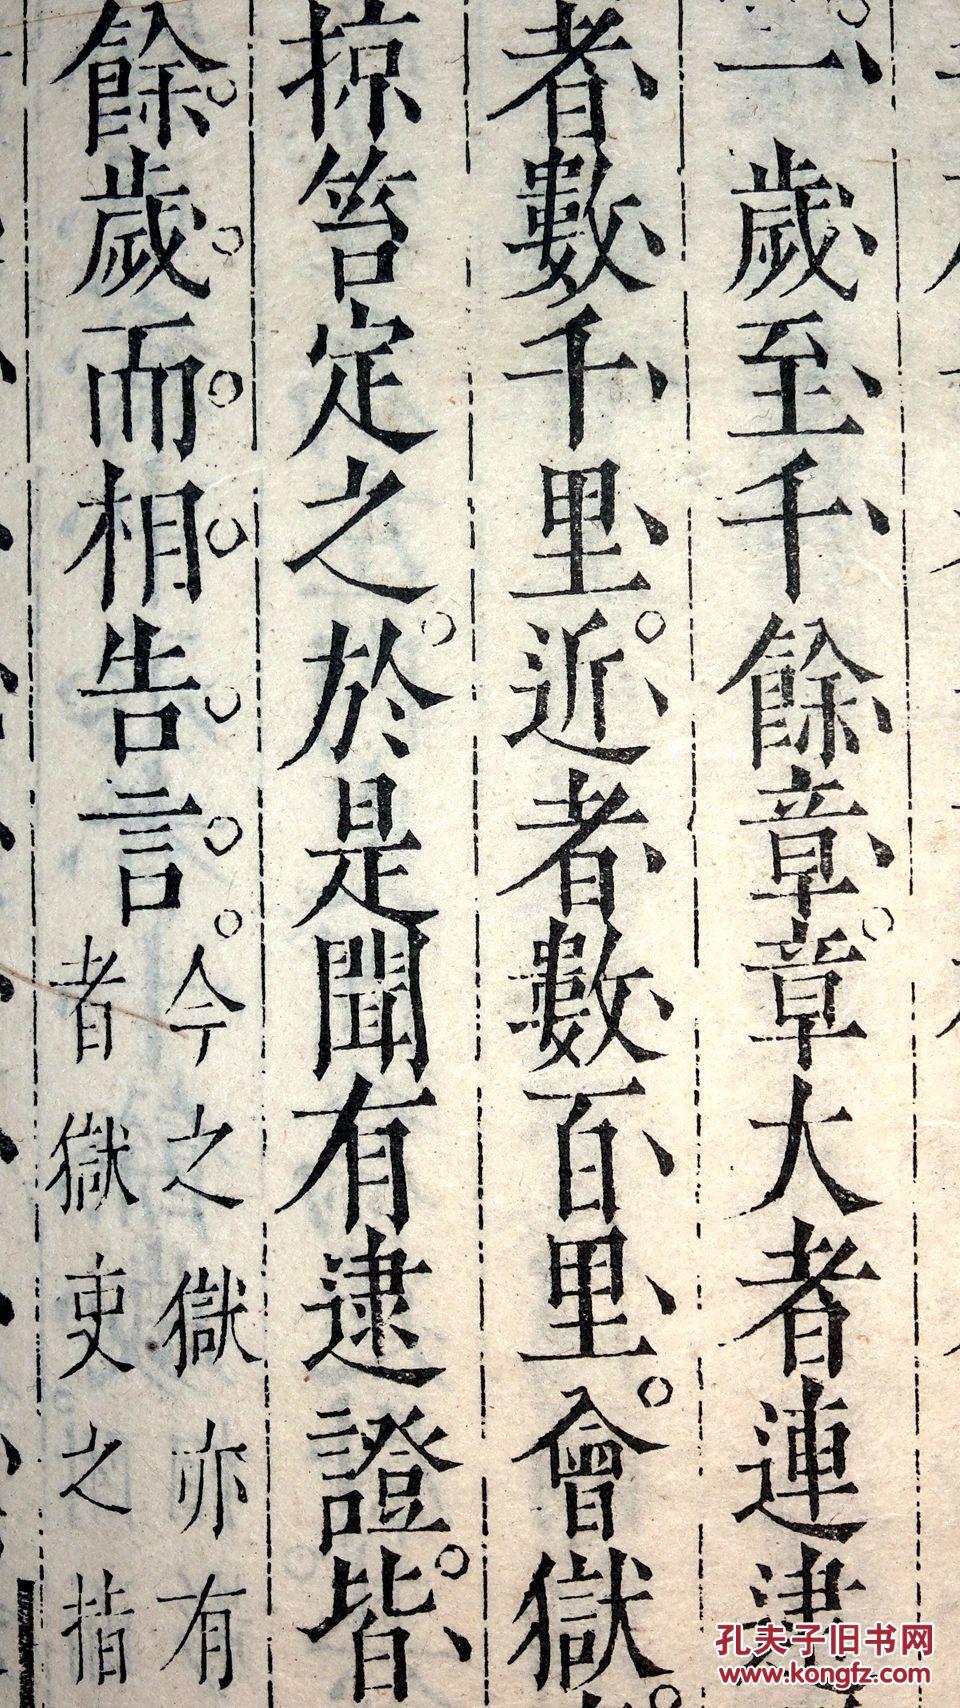 一歲至千餘章章大者連逮
者數千里近者數百里會獄
掠笞定之於是聞有逮證皆
餘歲而相告言
今之獄亦有
者獄吏之指
孔夫子旧书网
www.kongfz.com